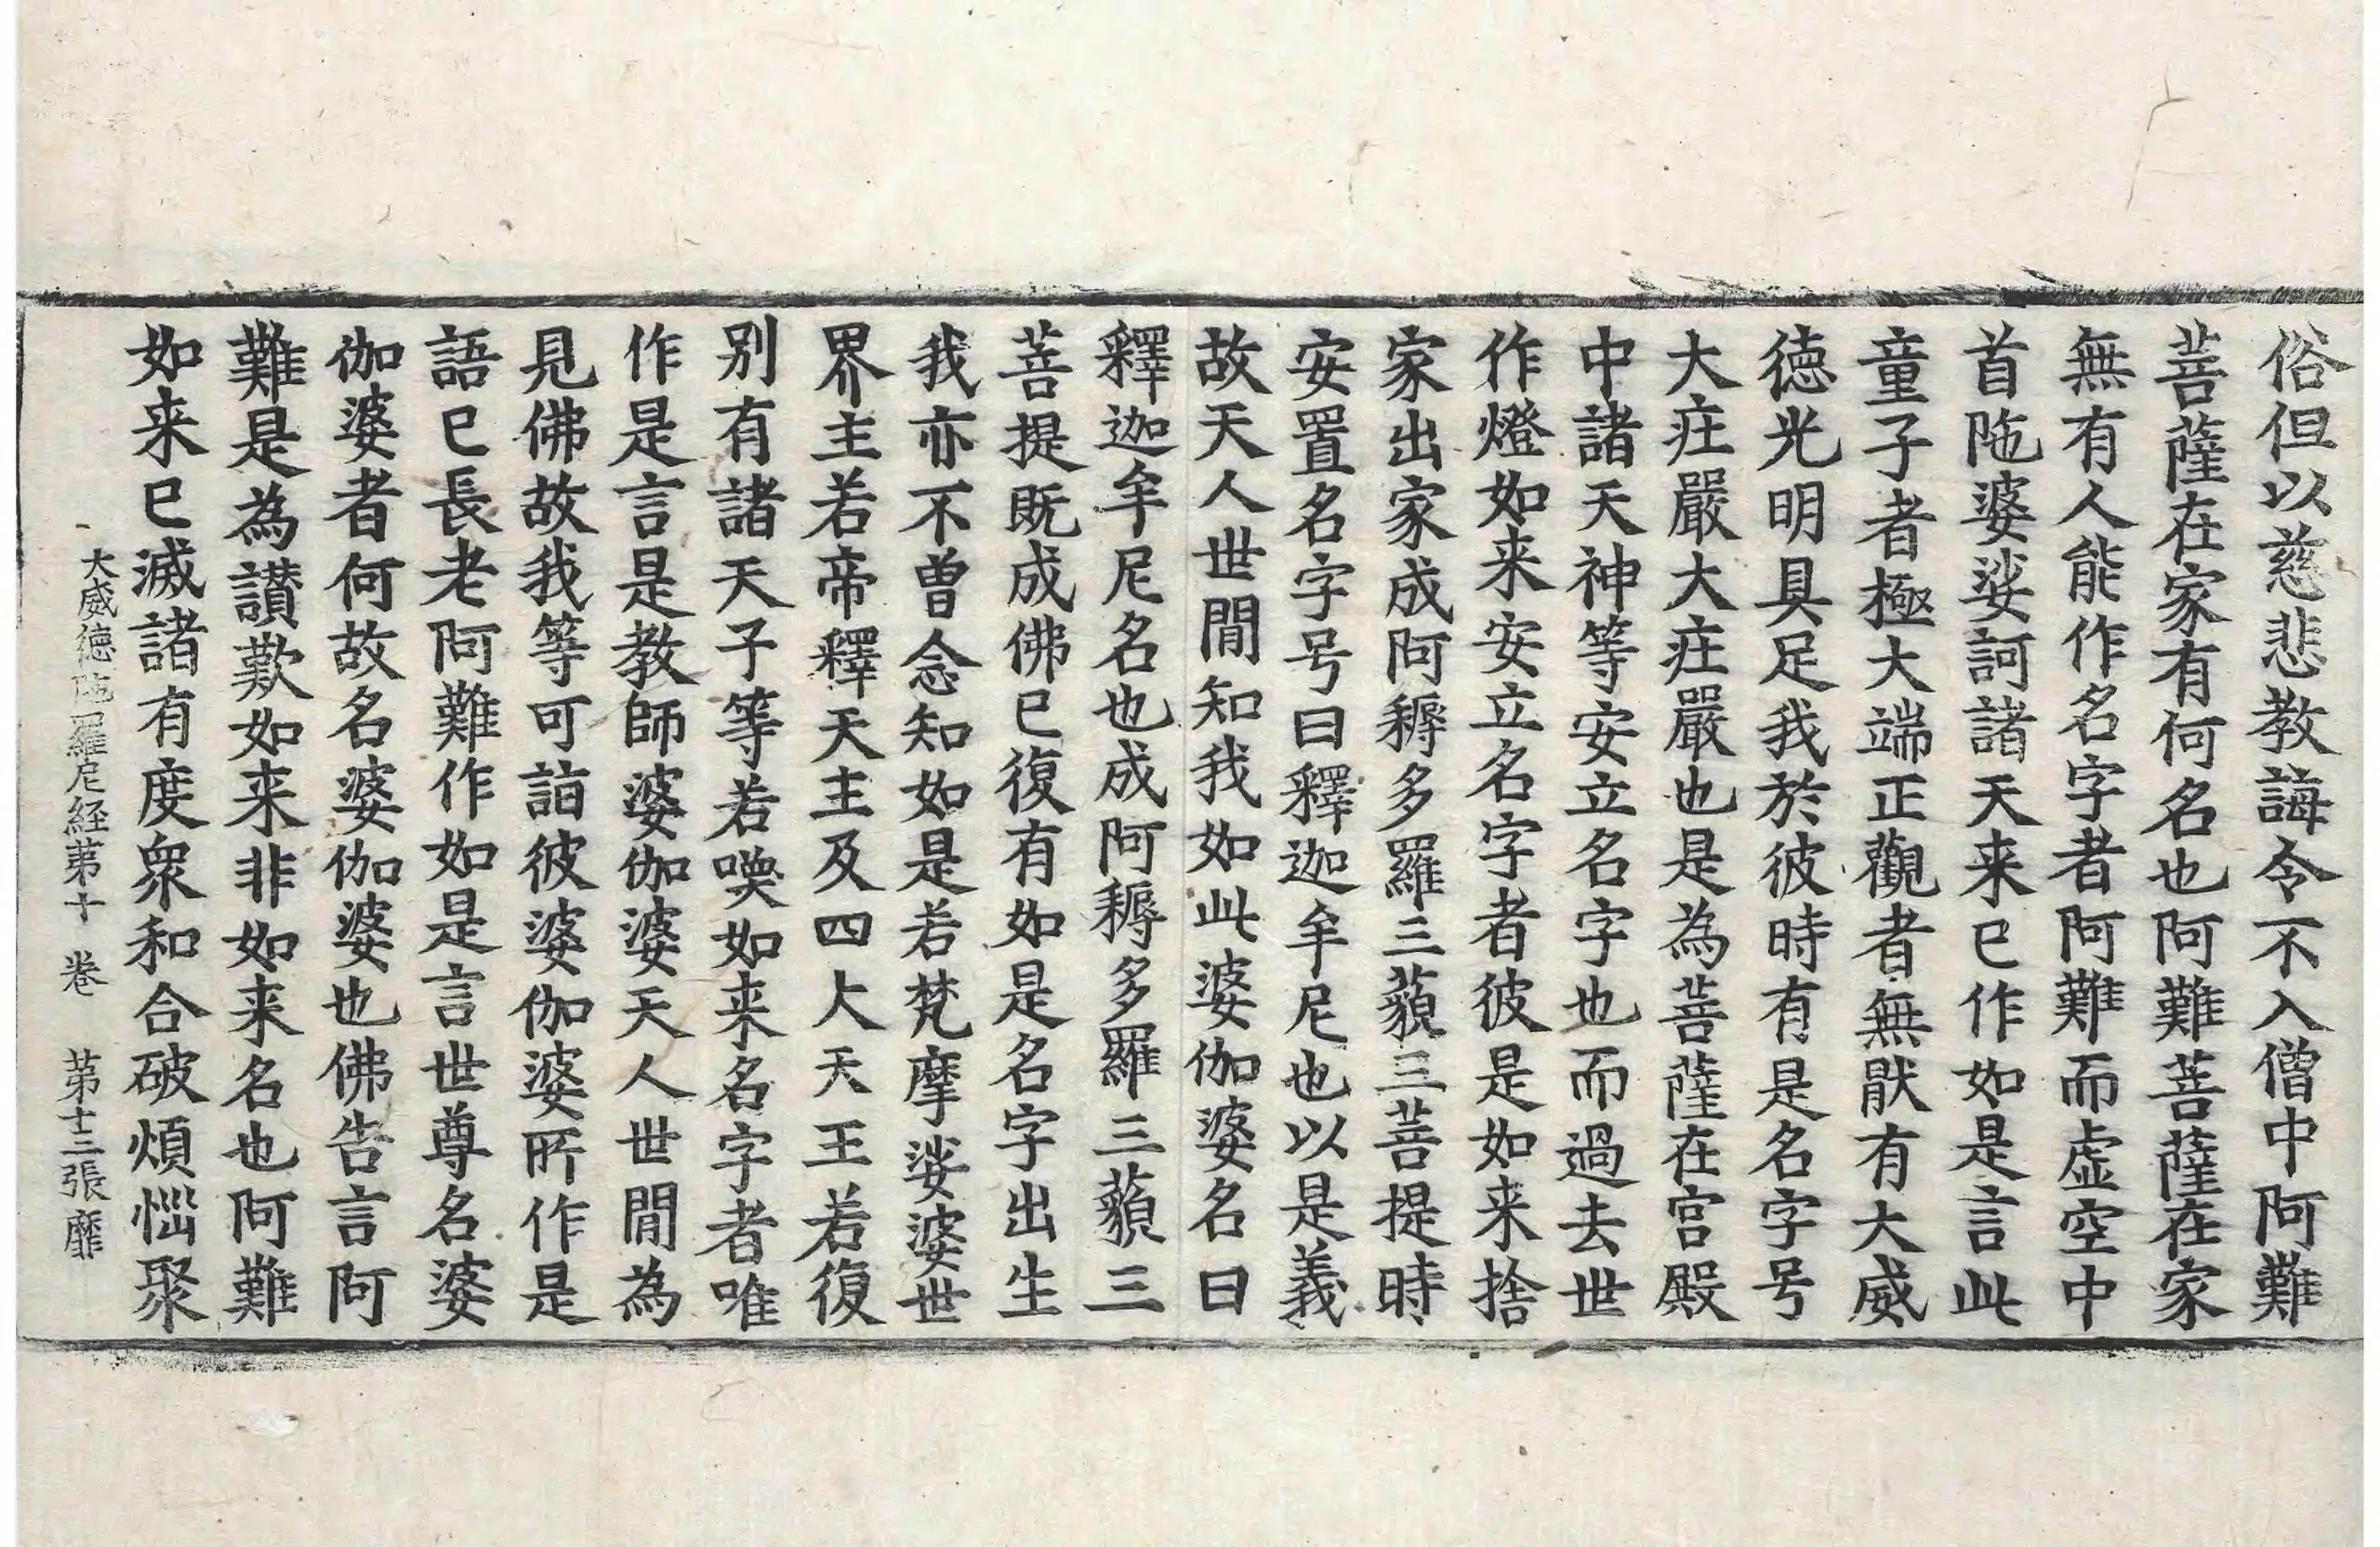 俗但以慈悲教誨令不入僧中阿難
菩薩在家有何名也阿難菩薩在家
無有人能作名字者阿難而虛空中
首陁婆娑訶諸天来已作如是言此
童子者極大端正觀者無猒有大威
德光明具足我於彼時有是名字号
大莊嚴大莊嚴也是為菩薩在宮殿
中諸天神等安立名字也而過去世
作燈如来安立名字者彼是如来捨
家出家成阿耨多羅三藐三菩提時
安置名字号曰釋迦牟尼也以是義
故天人世間知我如此婆伽婆名曰
釋迦牟尼名也成阿耨多羅三藐三
菩提既成佛已復有如是名字出生
我亦不曾念知如是若梵摩娑婆世
界主若帝釋天主及四大天王若復
別有諸天子等若喚如来名字者唯
作是言是教師婆伽婆天人世間為
見佛故我等可詣彼婆伽婆所作是
語已長老阿難作如是言世尊名婆
伽婆者何故名婆伽婆也佛告言阿
難是為讃歎如来非如来名也阿難
如来已滅諸有度衆和合破煩惱聚
大威德陁羅尼経第十卷 第十三張 靡